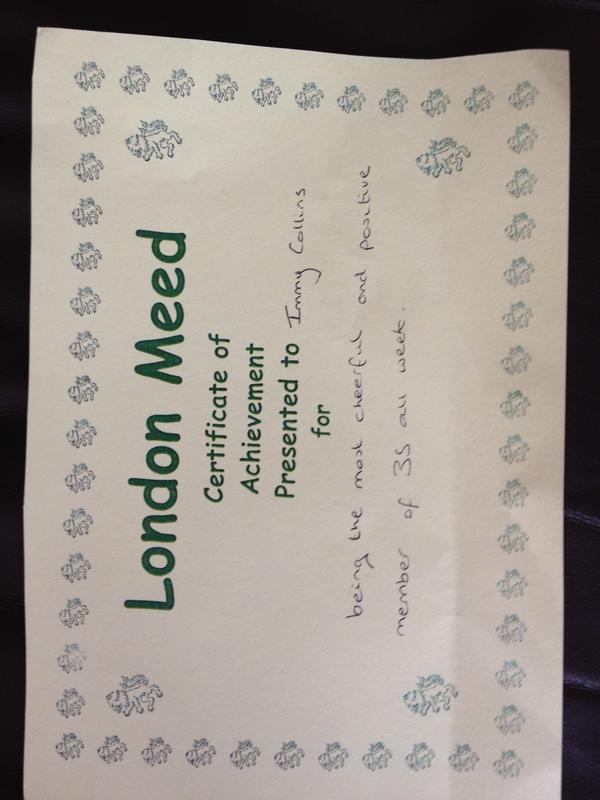 London Meed
Certificate of
Achievement
Presented to Immy Collins
for
being the most cheerful and positive
member of 3S all week.